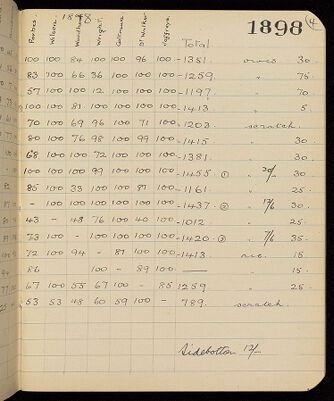 1898 1898 4
Forbes Wilson Woodhead Wright Coltman Walker Jeffreys Total
100 100 84 100 100 96 100 -1381. owes 30.
83 100 66 36 100 100 100 -1259. " 75.
57 100 100 12 100 100 100 -1197. " 70.
100 100 81 100 100 100 -1413. " 5.
70 100 69 96 100 71 100 -1203. scratch.
80 100 76 98 100 99 100 -1415. " 30.
68 100 100 72 100 100 100 -1381. " 30.
100 100 100 99 100 100 100 -1455 ① " 20/- 30.
85 100 33 100 100 87 100 -1161. " 25.
- 100 100 100 100 100 100 -1437 ② " 12/6 30.
43 - 48 76 100 40 100 -1012 " 25.
73 100 - 100 100 100 100 -1420 ③ " 7/6 35.
72 100 94 - 87 100 100 -1413. rec. 15.
86 100 - 89 100 " 15.
67 100 55 67 100 - 85 1259 " 25.
53 53 48 60 59 100 - 789. scratch.
Sidebottom 12/-